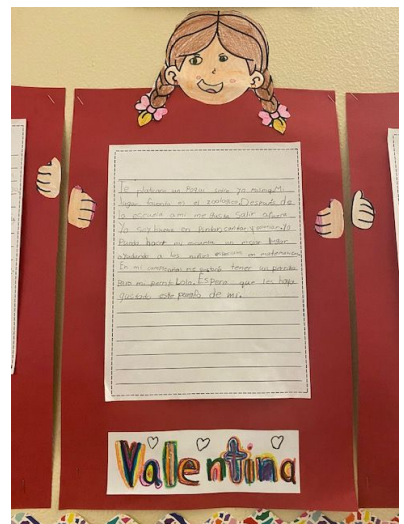 Te platicaré un poquito sobre yo misma. Mi
lugar favorito es el zoológico. Después de
la escuela a mi me gusta salir afuera.
Yo soy buena en pintar, cantar, y
Puedo hacer mi escuela un mejor lugar
ayudando a los niños en matemáticas.
En mi cumpleaños me gustaría tener un perrito
para mi Lola. Espero que les haya
gustado este párrafo de mi.
Valentina